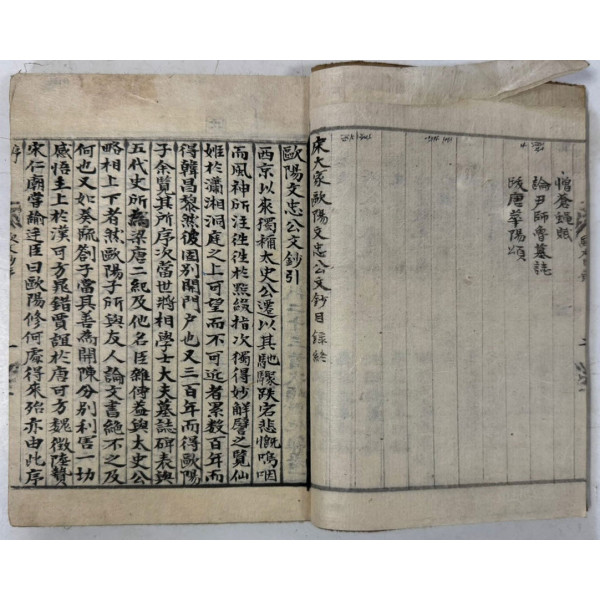 憎蒼蠅賦
論尹師魯墓誌
跋唐華陽頌
宋大家歐陽文忠公文鈔目錄終
歐陽文忠公文鈔引
西京以來獨稱太史公遷以其馳驟跌宕悲慨嗚咽
而風神所注往往於點綴指次獨得妙解譬之覽仙
姬於瀟湘洞庭之上可望而不可近者累數百年而
得韓昌黎然彼固別開門户也又三百年而得歐陽
子余覽其所序次當世將相學士大夫墓誌碑表與
五代史所為梁唐二紀及他名臣雜傳蓋與太史公
略相上下者然歐陽子所與友人論文書絕不之及
何也又如奏疏劄子當其善為開陳分别利害一切
感悟主上於漢可方晁錯賈誼於唐可方魏徵陸贄
宋仁廟嘗諭廷臣曰歐陽修何處得來殆亦由此序
序